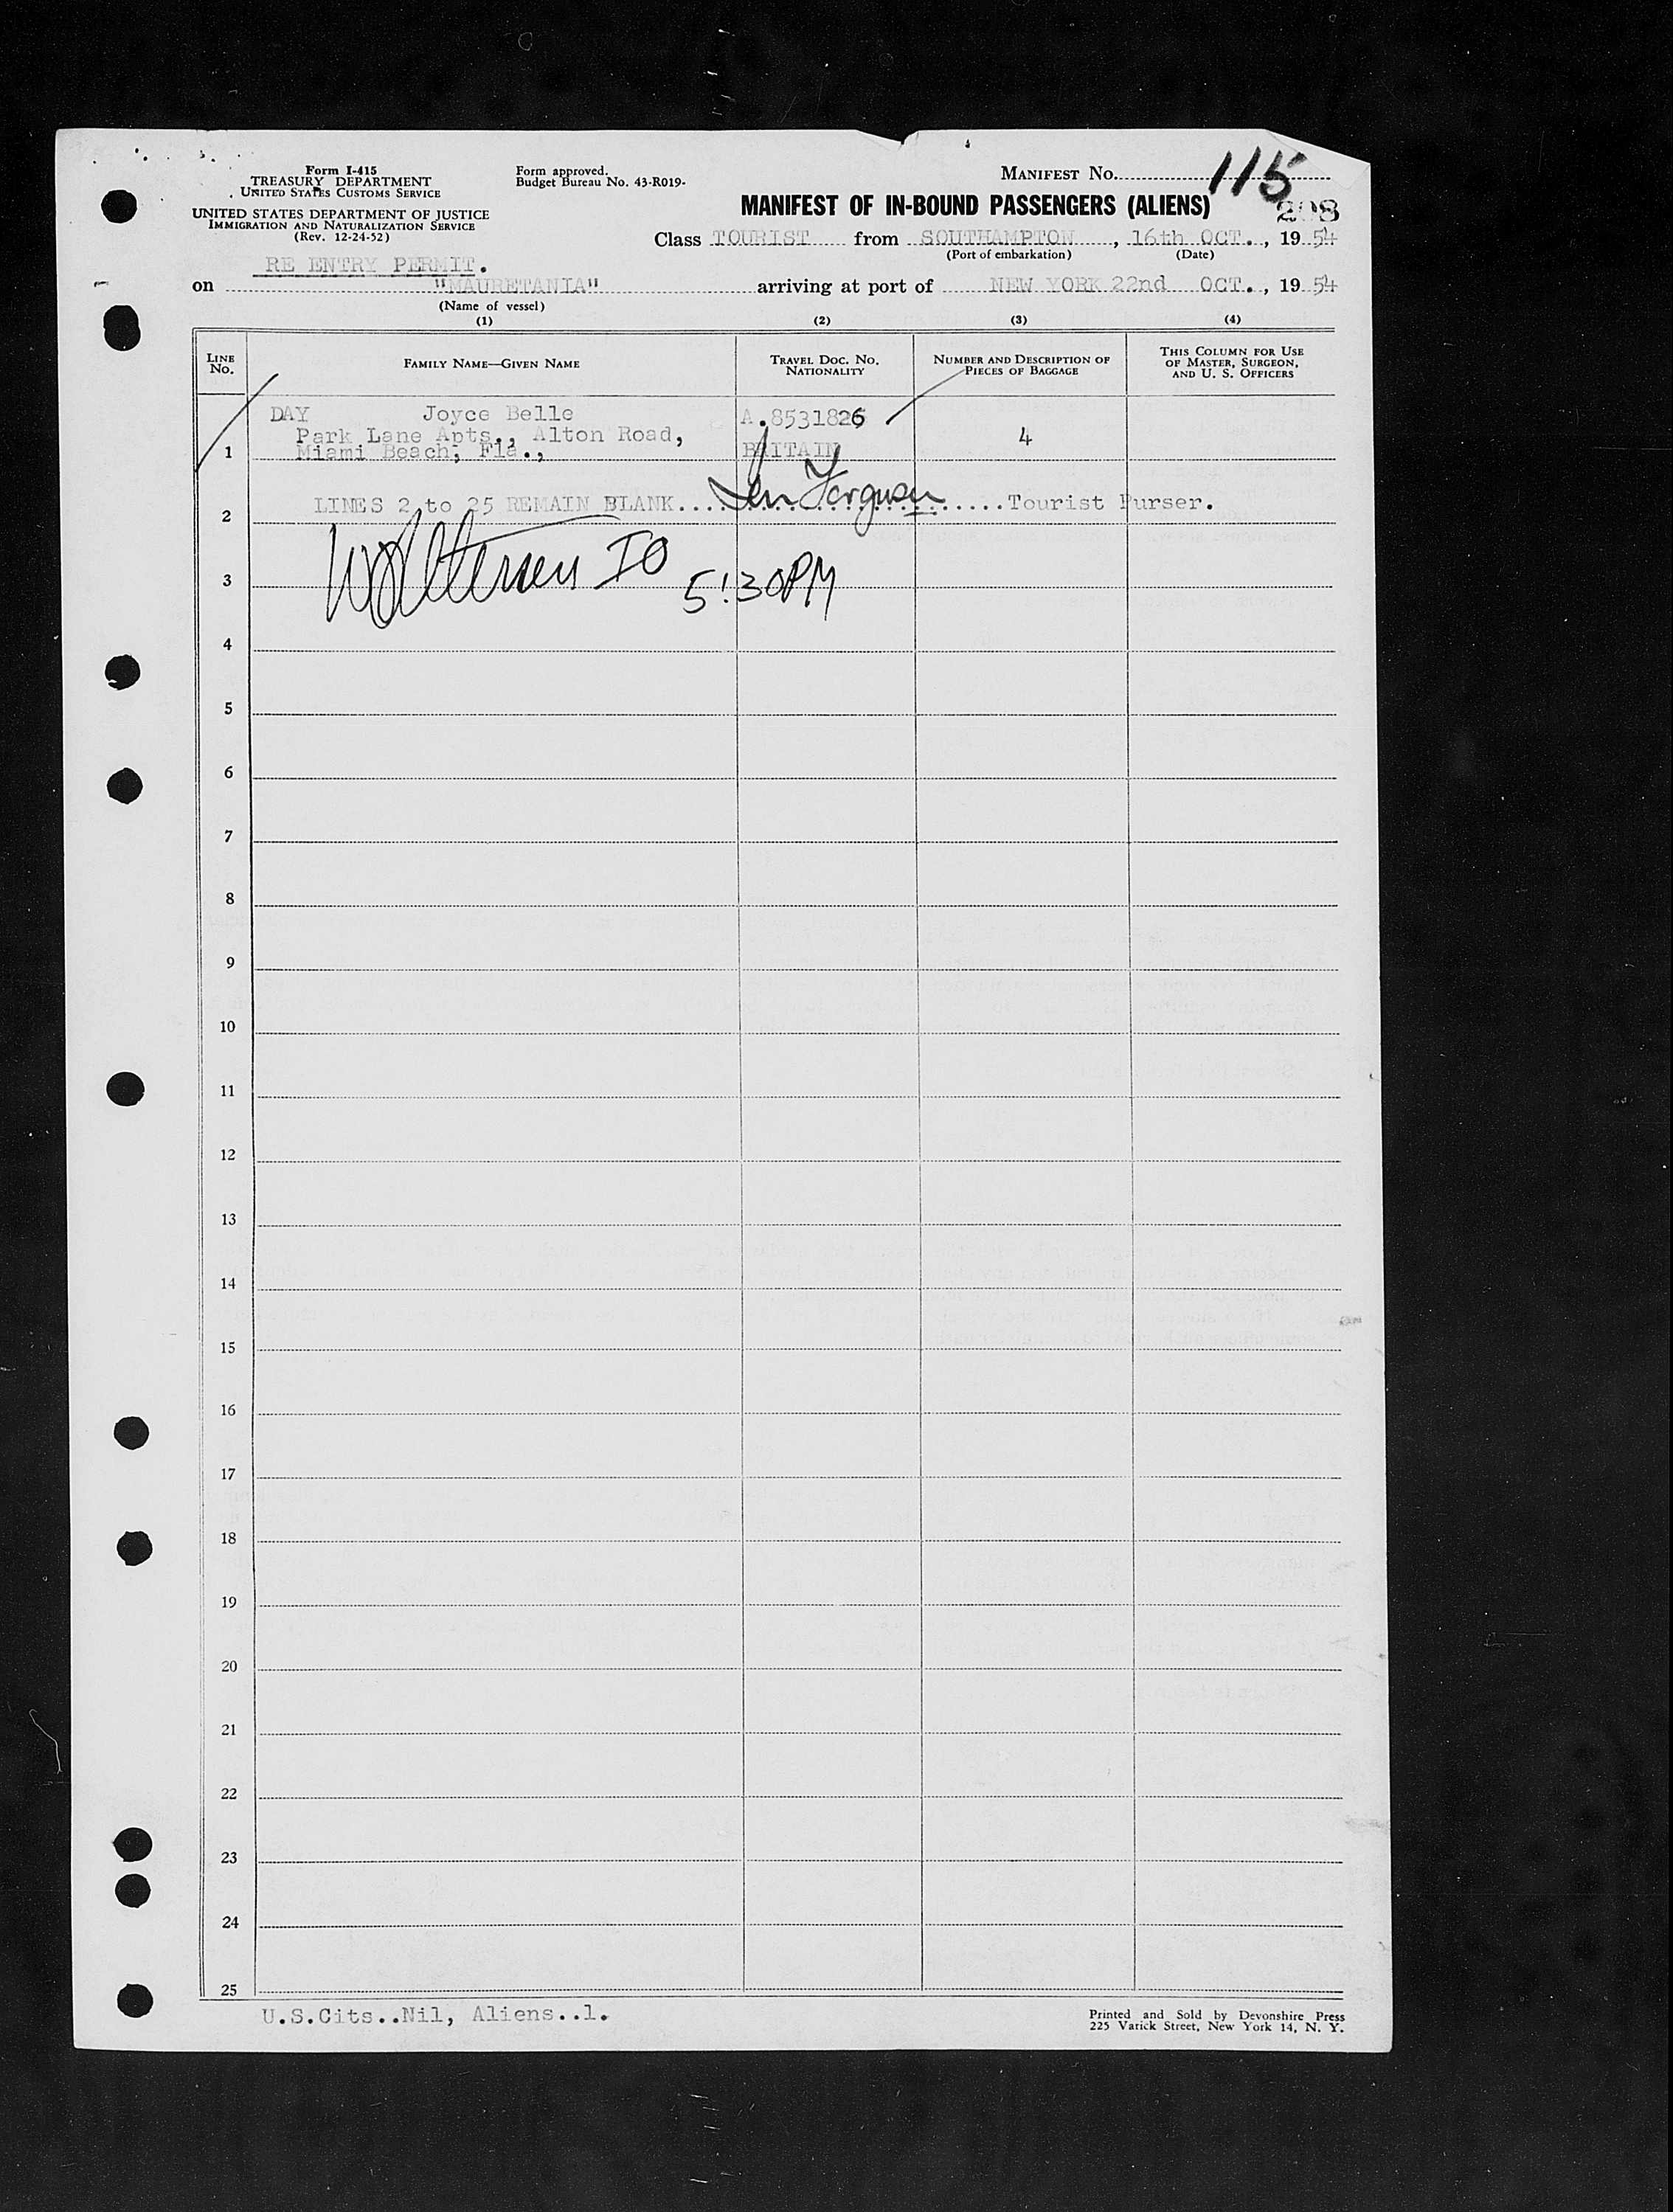 Form I-415
TREASURY DEPARTMENT
UNITED STATES CUSTOMS SERVICE
UNITED STATES DEPARTMENT OF JUSTICE
IMMIGRATION AND NATURALIZATION SERVICE
(Rev. 12-24-52)
Form approved.
Budget Bureau No. 43-R019-
MANIFEST No. 115
MANIFEST OF IN-BOUND PASSENGERS (ALIENS)
208
Class TOURIST from SOUTHAMPTON, 16th OCT., 1954
(Port of embarkation) (Date)
RE ENTRY PERMIT.
on "MAURETANIA" arriving at port of NEW YORK 22nd OCT., 1954
(Name of vessel)
(1) (2) (3) (4)
LINE No. FAMILY NAME—GIVEN NAME TRAVEL DOC. No. NATIONALITY NUMBER AND DESCRIPTION OF PIECES OF BAGGAGE THIS COLUMN FOR USE OF MASTER, SURGEON, AND U. S. OFFICERS
DAY Joyce Belle A.8531826
Park Lane Apts., Alton Road, 4
1 Miami Beach, Fla., BRITAIN
LINES 2 to 25 REMAIN BLANK.... Len Ferguson ......Tourist Purser.
2
IO 5:30PM
3
4
5
6
7
8
9
10
11
12
13
14
15
16
17
18
19
20
21
22
23
24
25
U.S.Cits..Nil, Aliens..1.
Printed and Sold by Devonshire Press
225 Varick Street, New York 14, N. Y.